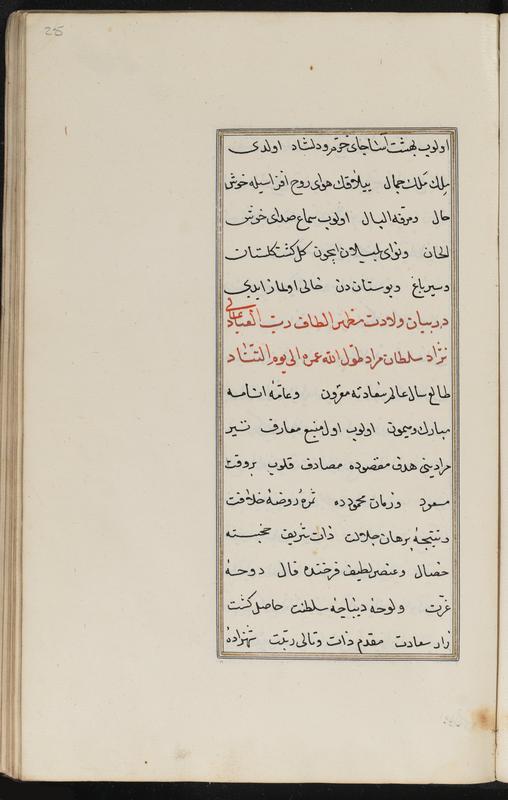 25
اولوب بهشت آسا جای خرم ودلشاد اولدی
ملك ملك جمال ییلاقك هوای روح افزاسیله خوش
حال ومرفه البال اولوب سماع صدای خوش
الحان ونوای بلبلان ایچون كل كشت كلستان
وسیر باغ وبوستان دن خالی اولماز ایدی
در بیان ولادت مظهر الطاف رب العباد عالی
نژاد سلطان مراد طول الله عمره الی یوم التناد
طالع سال عالم سعادته مقرون وعامۀ انامه
مبارك ومیمون اولوب اول منبع معارف تیر
مرادینی هدف مقصوده مصادف قلوب بروقت
مسعود وزمان محمودده ثمرۀ روضۀ خلافت
ونتیجۀ برهان جلالت ذات شریف خجسته
خصال وعنصر لطیف فرخنده فال دوحۀ
عزت ولوحۀ دیباچۀ سلطنت حاصل كشت
زار سعادت مقدم ذات وتالی رتبت شهزادۀ